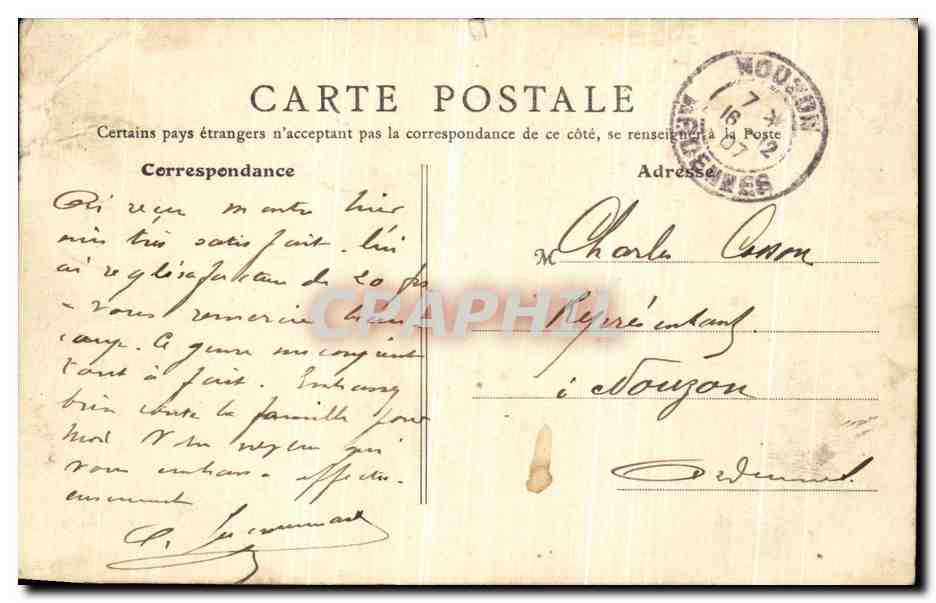 CARTE POSTALE
Certains pays étrangers n'acceptant pas la correspondance de ce côté, se renseigner à la Poste
NOUZON
7 *
16 12
07
ARDENNES
Correspondance
Ai reçu montre hier
suis très satisfait. Lui
ai réglé sa facture de 20 frs
vous remercie beau
coup. Ce genre me convient
tout à fait. Embrassez
bien toute la famille pour
moi Votre neveu qui
vous embrasse affectu
eusement
Adresse
M Charles
Représentant
à Nouzon
Ardennes
CPARAMA